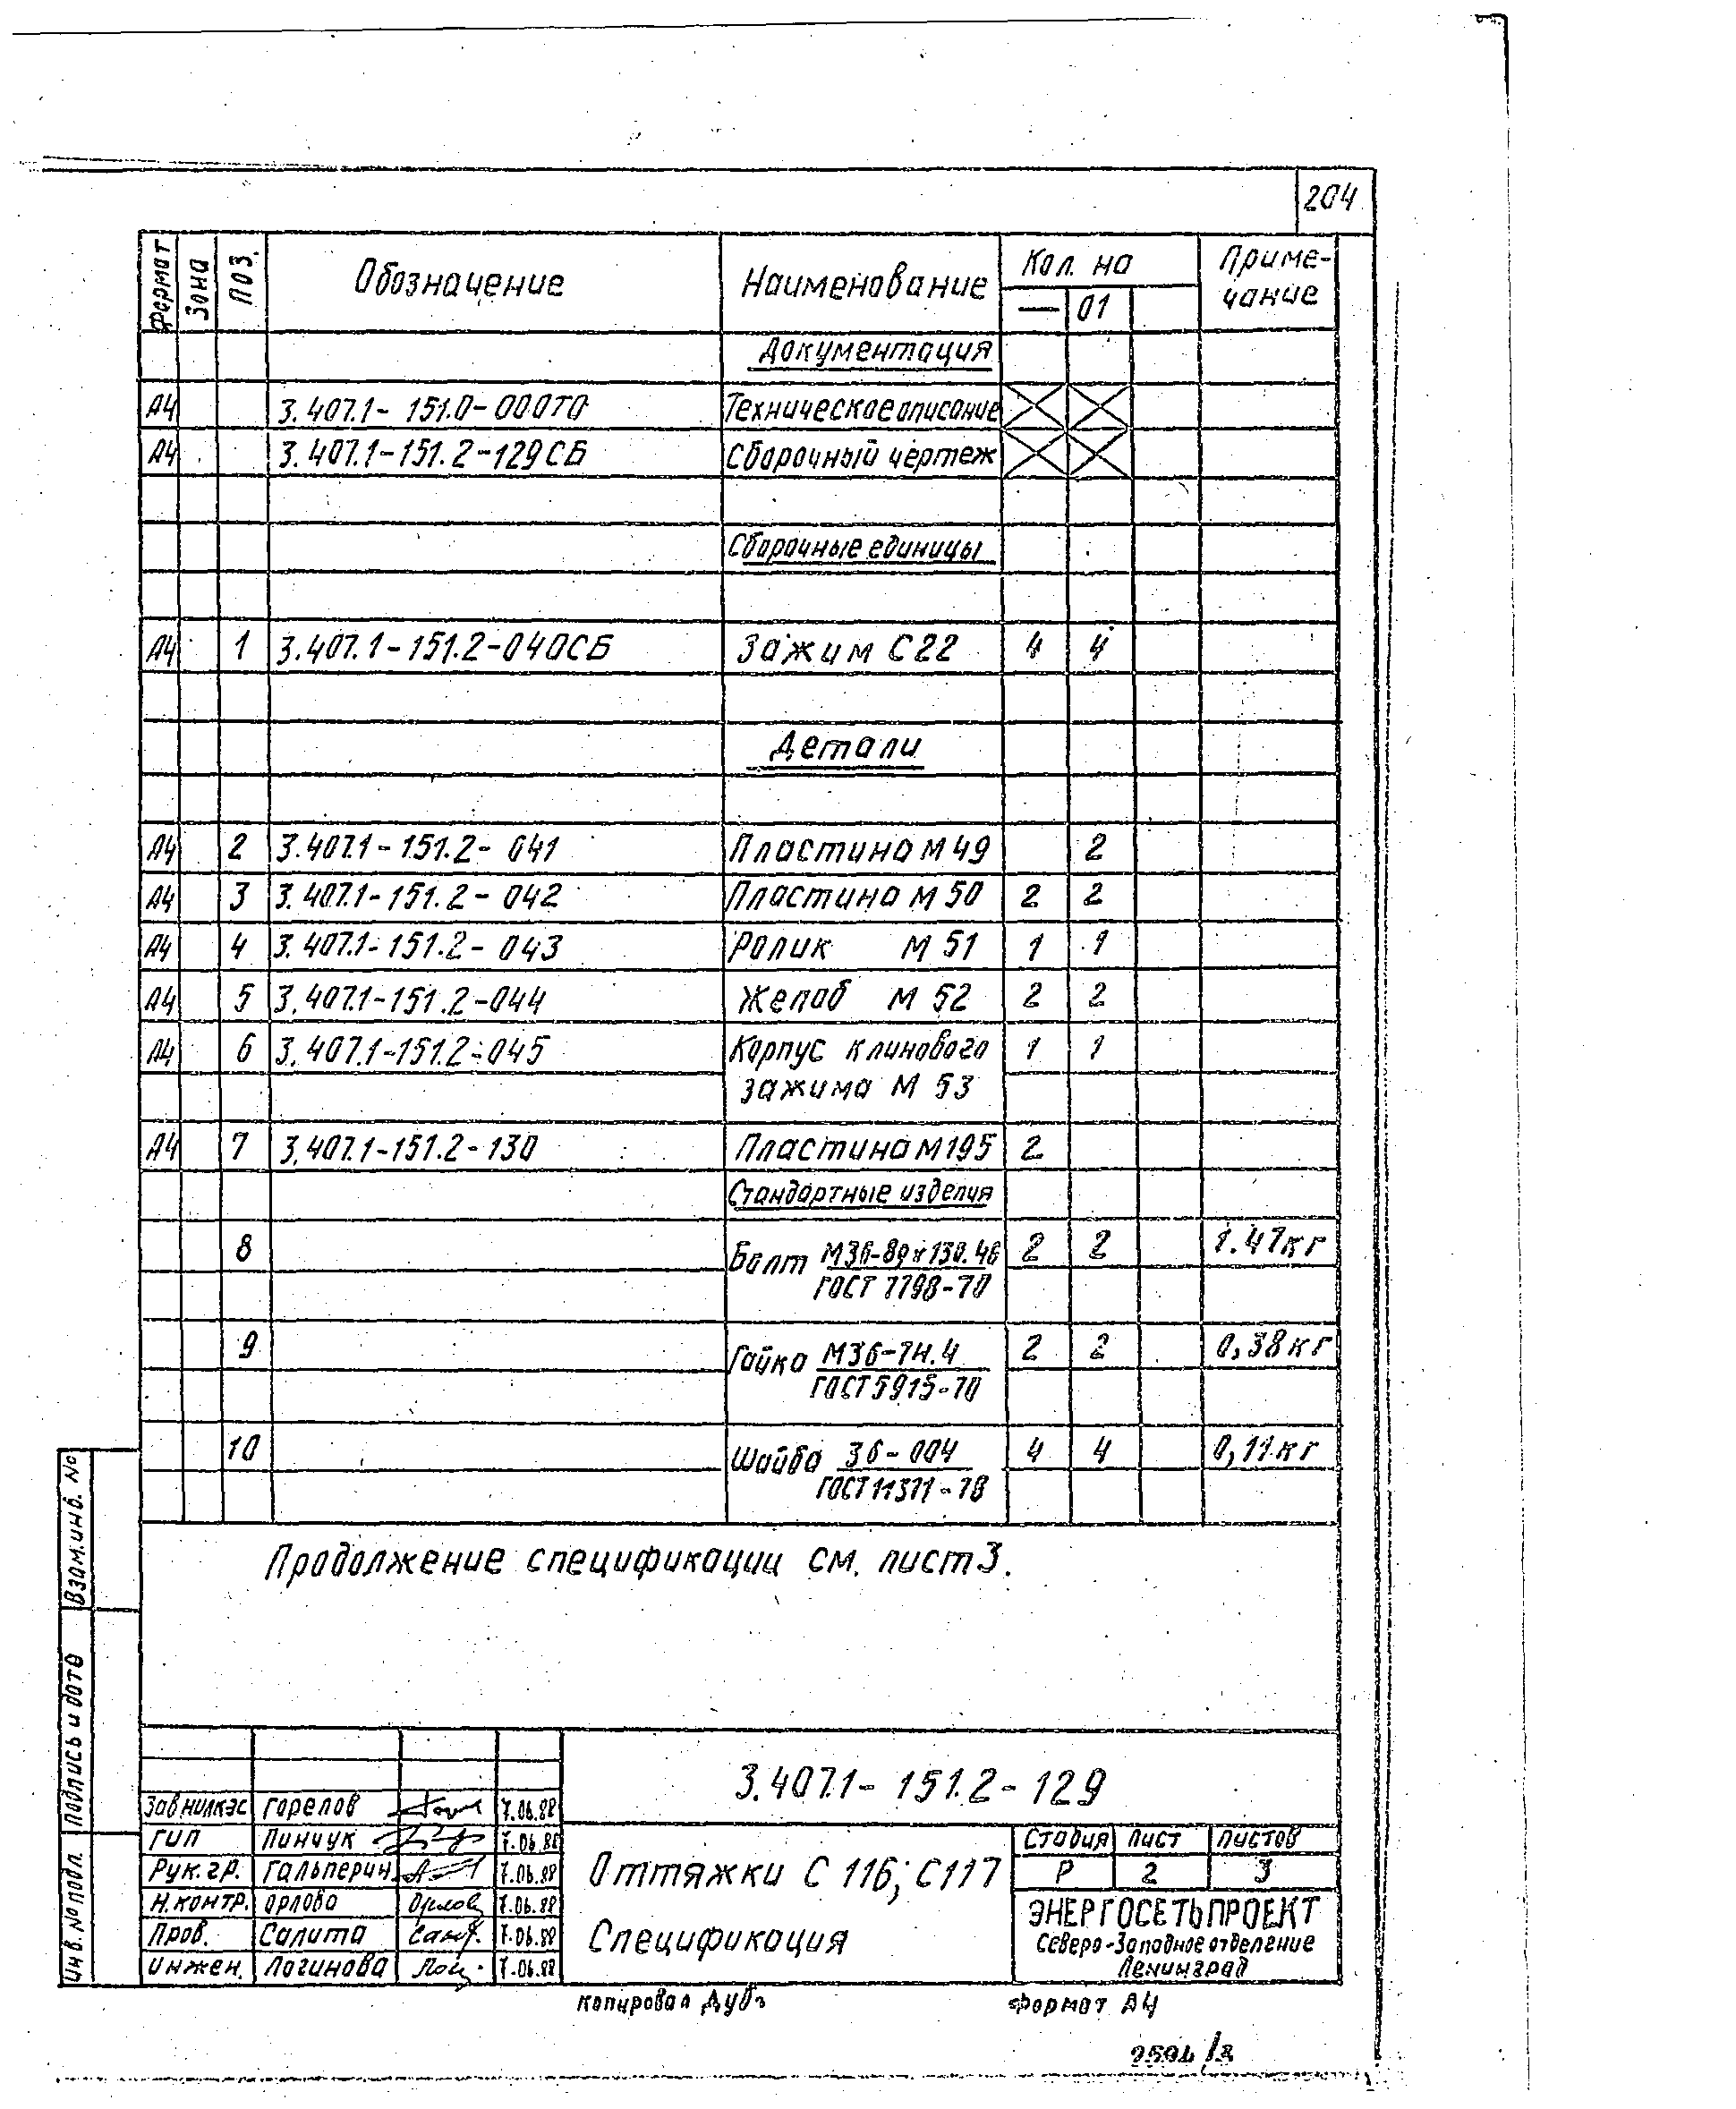 204
Формат Зона Поз. Обозначение Наименование Кол. на Приме-
— 01 чание
Документация
А4 3.407.1-151.0-000ТО Техническое описание
А4 3.407.1-151.2-129СБ Сборочный чертеж
Сборочные единицы
А4 1 3.407.1-151.2-040СБ Зажим С22 4 4
Детали
А4 2 3.407.1-151.2-041 Пластина М49 2
А4 3 3.407.1-151.2-042 Пластина М50 2 2
А4 4 3.407.1-151.2-043 Ролик М51 1 1
А4 5 3.407.1-151.2-044 Желоб М52 2 2
А4 6 3.407.1-151.2-045 Корпус клинового 1 1
зажима М 53
А4 7 3.407.1-151.2-130 Пластина М195 2
Стандартные изделия
8 Болт М36-8g×130.46 2 2 1.47кг
ГОСТ 7798-70
9 Гайка М36-7Н.4 2 2 0,38кг
ГОСТ 5915-70
10 Шайба 36-004 4 4 0,11кг
ГОСТ 11371-78
Продолжение спецификации см. лист 3.
Взам.инв. №
Подпись и дата
Инв. № подл.
3.407.1-151.2-129
Зав нилкэс Горелов 7.06.88
ГИП Пинчук 7.06.88
Рук. гр. Гальперин 7.06.88
Н.контр. Орлова 7.06.88
Пров. Салита 7.06.88
Инжен. Логинова 7.06.88
Оттяжки С 116; С117
Спецификация
Стадия Лист Листов
Р 2 3
ЭНЕРГОСЕТЬПРОЕКТ
Северо-Западное отделение
Ленинград
Копировал Дуб Формат А4